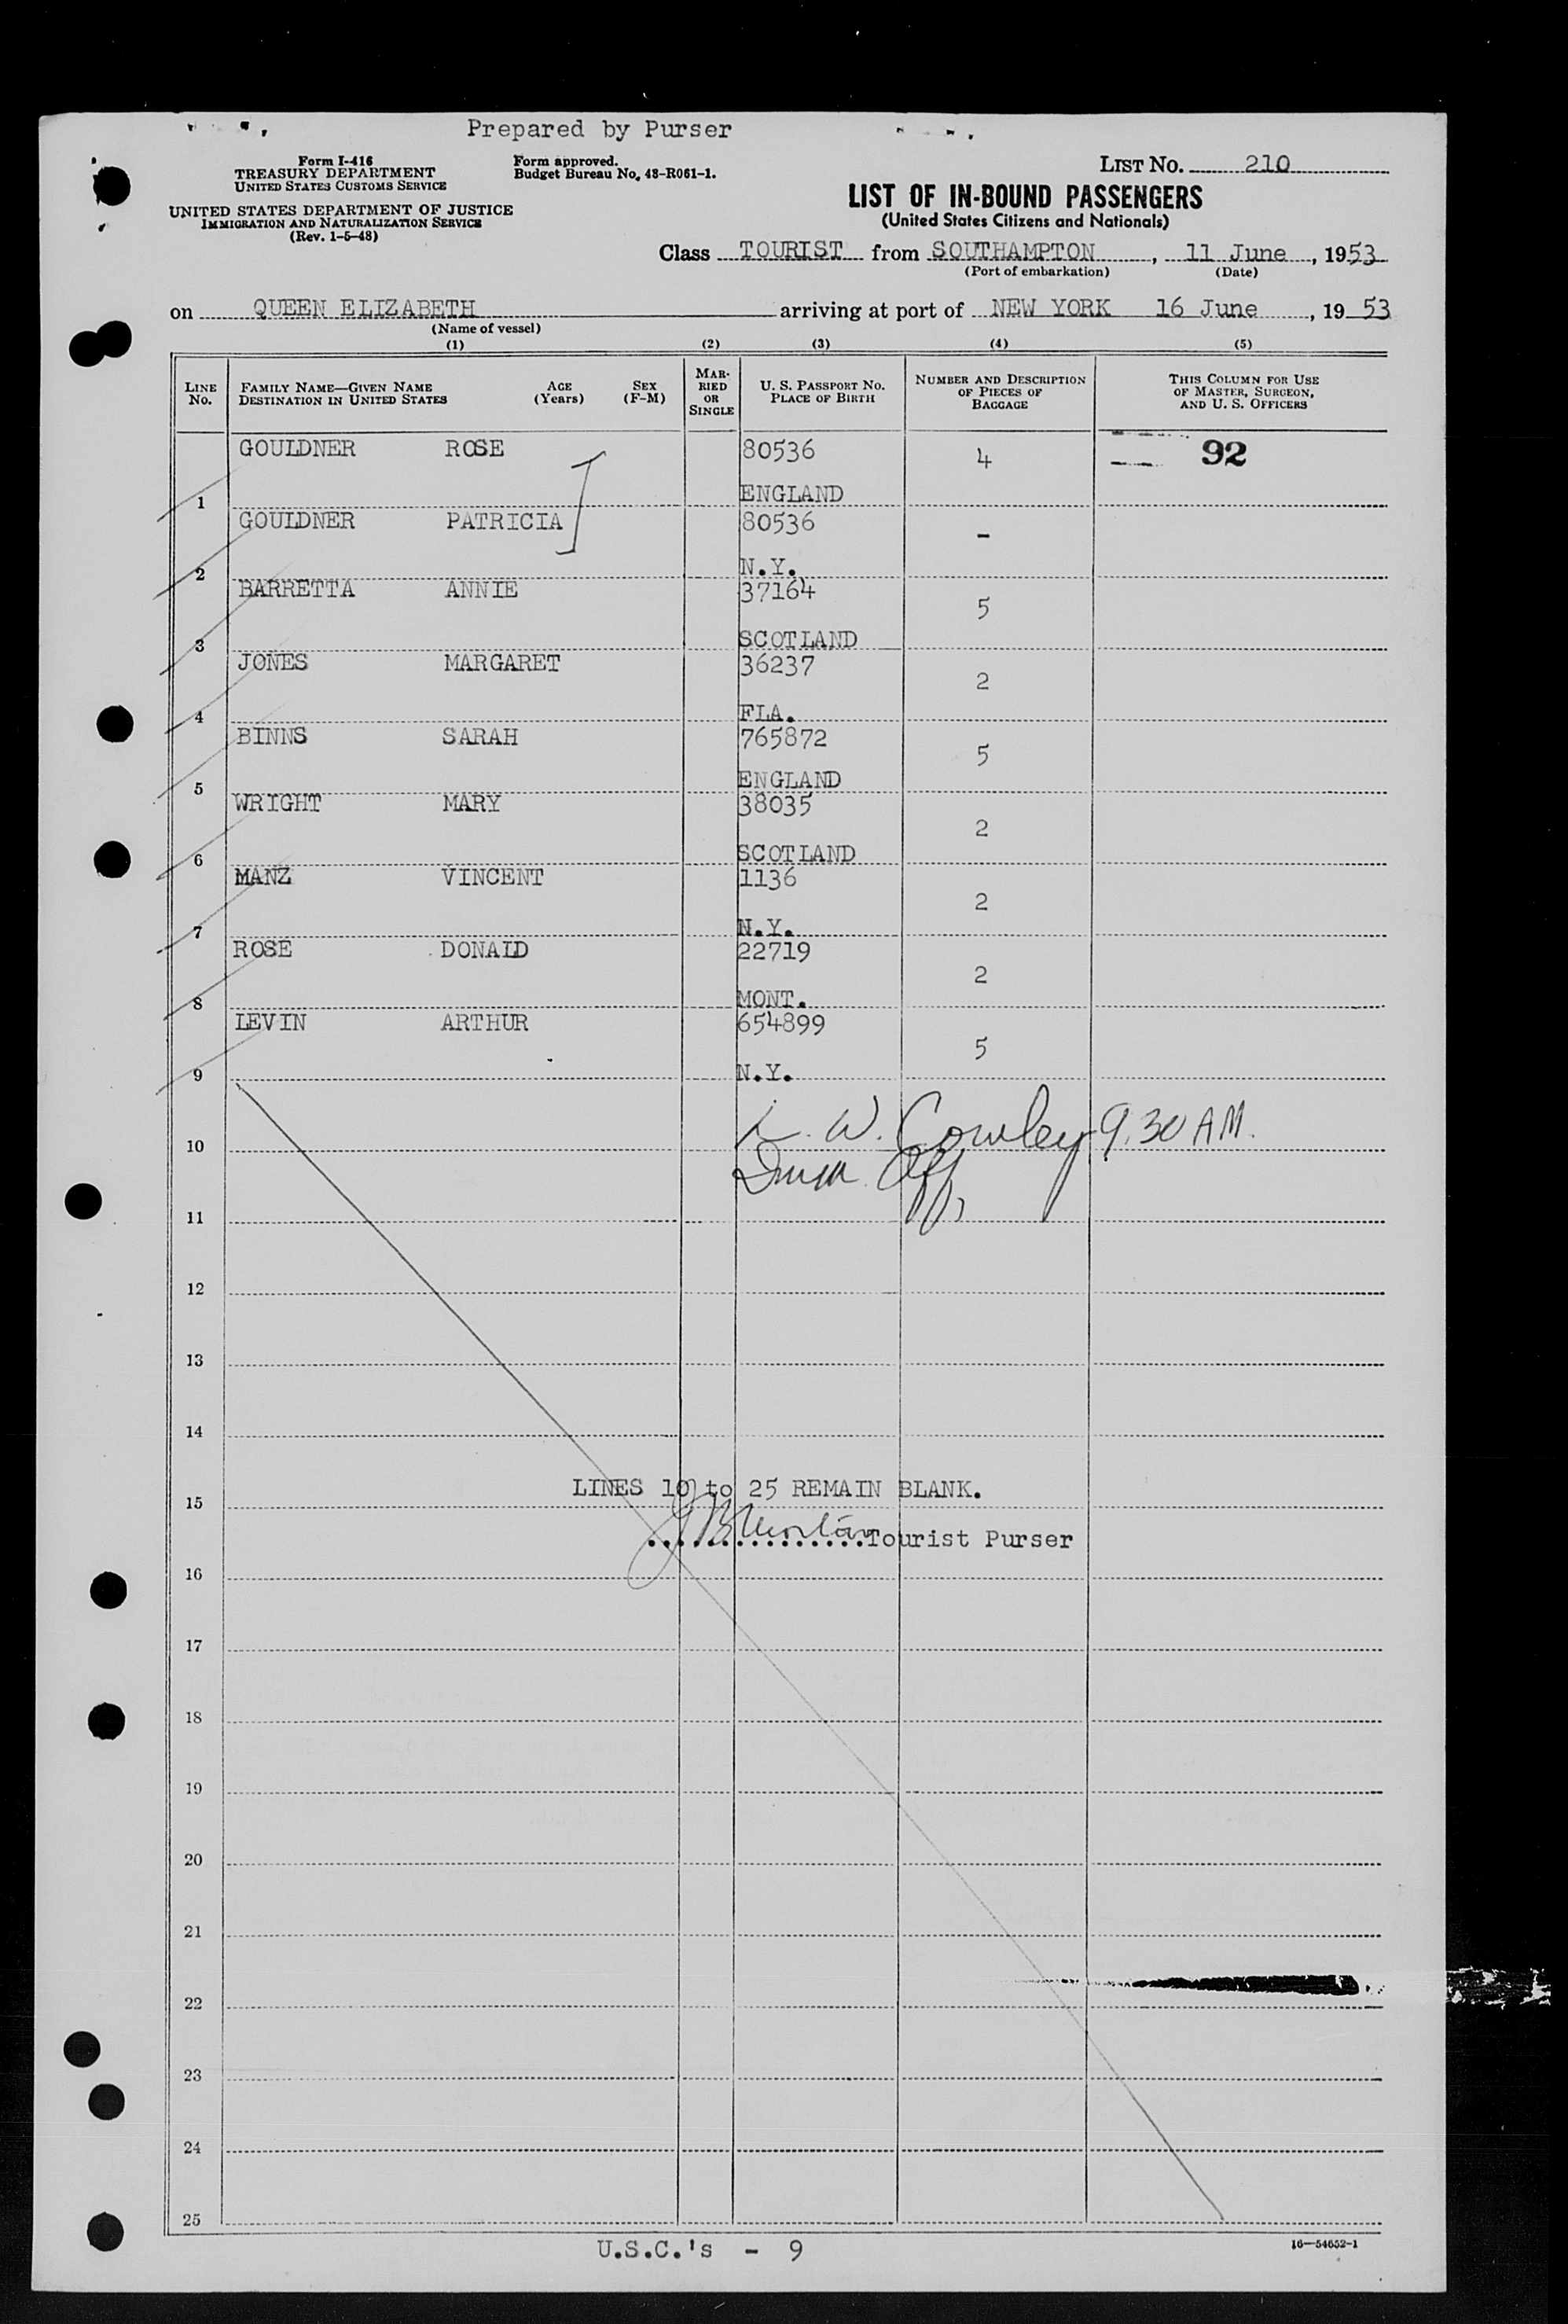 Prepared by Purser
Form I-416
TREASURY DEPARTMENT
UNITED STATES CUSTOMS SERVICE
UNITED STATES DEPARTMENT OF JUSTICE
IMMIGRATION AND NATURALIZATION SERVICE
(Rev. 1-5-48)
Form approved.
Budget Bureau No. 48-R061-1.
LIST NO. 210
LIST OF IN-BOUND PASSENGERS
(United States Citizens and Nationals)
Class TOURIST from SOUTHAMPTON, 11 June, 1953
(Port of embarkation) (Date)
on QUEEN ELIZABETH arriving at port of NEW YORK 16 June, 1953
(Name of vessel)
(1) (2) (3) (4) (5)
LINE No.
FAMILY NAME—GIVEN NAME
DESTINATION IN UNITED STATES
AGE (Years)
SEX (F-M)
MARRIED OR SINGLE
U. S. PASSPORT NO.
PLACE OF BIRTH
NUMBER AND DESCRIPTION OF PIECES OF BAGGAGE
THIS COLUMN FOR USE OF MASTER, SURGEON, AND U. S. OFFICERS
GOULDNER ROSE 80536 4 92
1 ENGLAND
GOULDNER PATRICIA 80536 -
2 N.Y.
BARRETTA ANNIE 37164 5
3 SCOTLAND
JONES MARGARET 36237 2
4 FLA.
BINNS SARAH 765872 5
5 ENGLAND
WRIGHT MARY 38035 2
6 SCOTLAND
MANZ VINCENT 1136 2
7 N.Y.
ROSE DONALD 22719 2
8 MONT.
LEVIN ARTHUR 654899 5
9 N.Y.
W. Cowley 9.30 A.M.
10
Off,
11
12
13
14
LINES 10 to 25 REMAIN BLANK.
15
Tourist Purser
16
17
18
19
20
21
22
23
24
25
U.S.C.'s - 9
16—54652-1